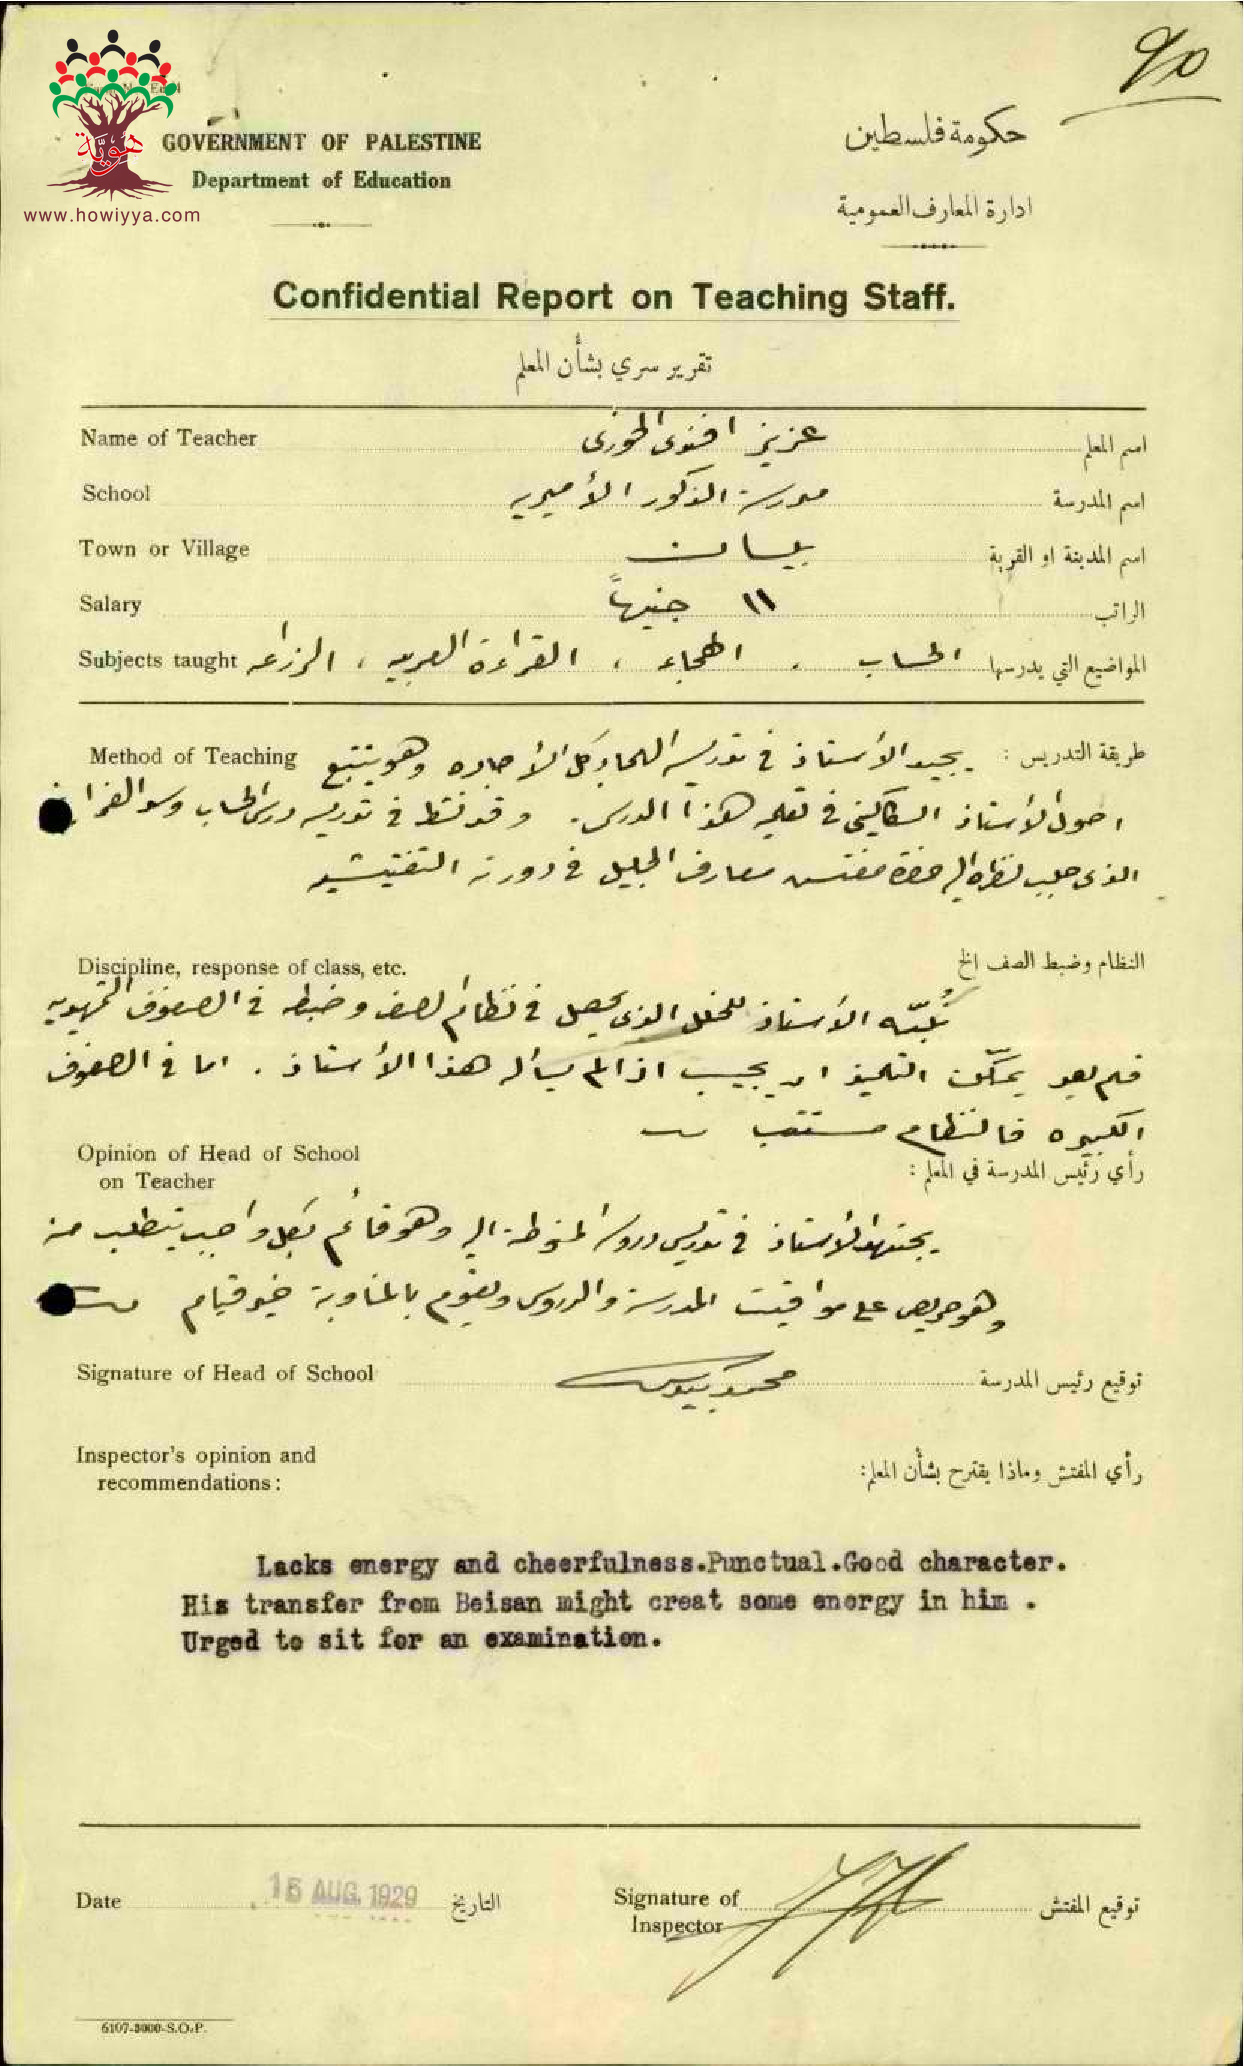 90
هوية
www.howiyya.com
GOVERNMENT OF PALESTINE
Department of Education
حكومة فلسطين
ادارة المعارف العمومية
Confidential Report on Teaching Staff.
تقرير سري بشأن المعلم
Name of Teacher عزيز افندي الخوري اسم المعلم
School مدرسة الذكور الأميريه اسم المدرسة
Town or Village بيسان اسم المدينة او القرية
Salary ١١ جنيهاً الراتب
Subjects taught المواضيع التي يدرسها الحساب ، الهجاء ، القراءة العربيه ، الزراعه
Method of Teaching طريقة التدريس : يجيد الأستاذ في تدريس الهجاء كل الأجاده وهو يتتبع
اصول الأستاذ السكاكيني في تعليم هذا الدرس . وقد نشط في تدريس درس الحساب وسد الفراغ
الذي جلب نظره اليه حضرة مفتش معارف الجليل في دورته التفتيشيه
Discipline, response of class, etc. النظام وضبط الصف الخ
تنبّه الأستاذ للخلل الذي يحصل في نظام الصف وضبطه في الصفوف التمهيديه
فلم يعد يتمكّن التلميذ ان يجيب اذا لم يسأله هذا الأستاذ . اما في الصفوف
الكبيره فالنظام مستتب
Opinion of Head of School
on Teacher
رأي رئيس المدرسة في المعلم :
يجتهد الأستاذ في تدريس دروسه المنوطة اليه وهو قائم بكل واجب يتطلب منه
وهو حريص على مواقيت المدرسة والدروس ويقوم بالمناوبة خير قيام
Signature of Head of School توقيع رئيس المدرسة
Inspector's opinion and
recommendations :
رأي المفتش وماذا يقترح بشأن المعلم:
Lacks energy and cheerfulness.Punctual.Good character.
His transfer from Beisan might creat some energy in him .
Urged to sit for an examination.
Date 15 AUG. 1929 التاريخ
Signature of
Inspector
توقيع المفتش
6107-3000-S.O.P.